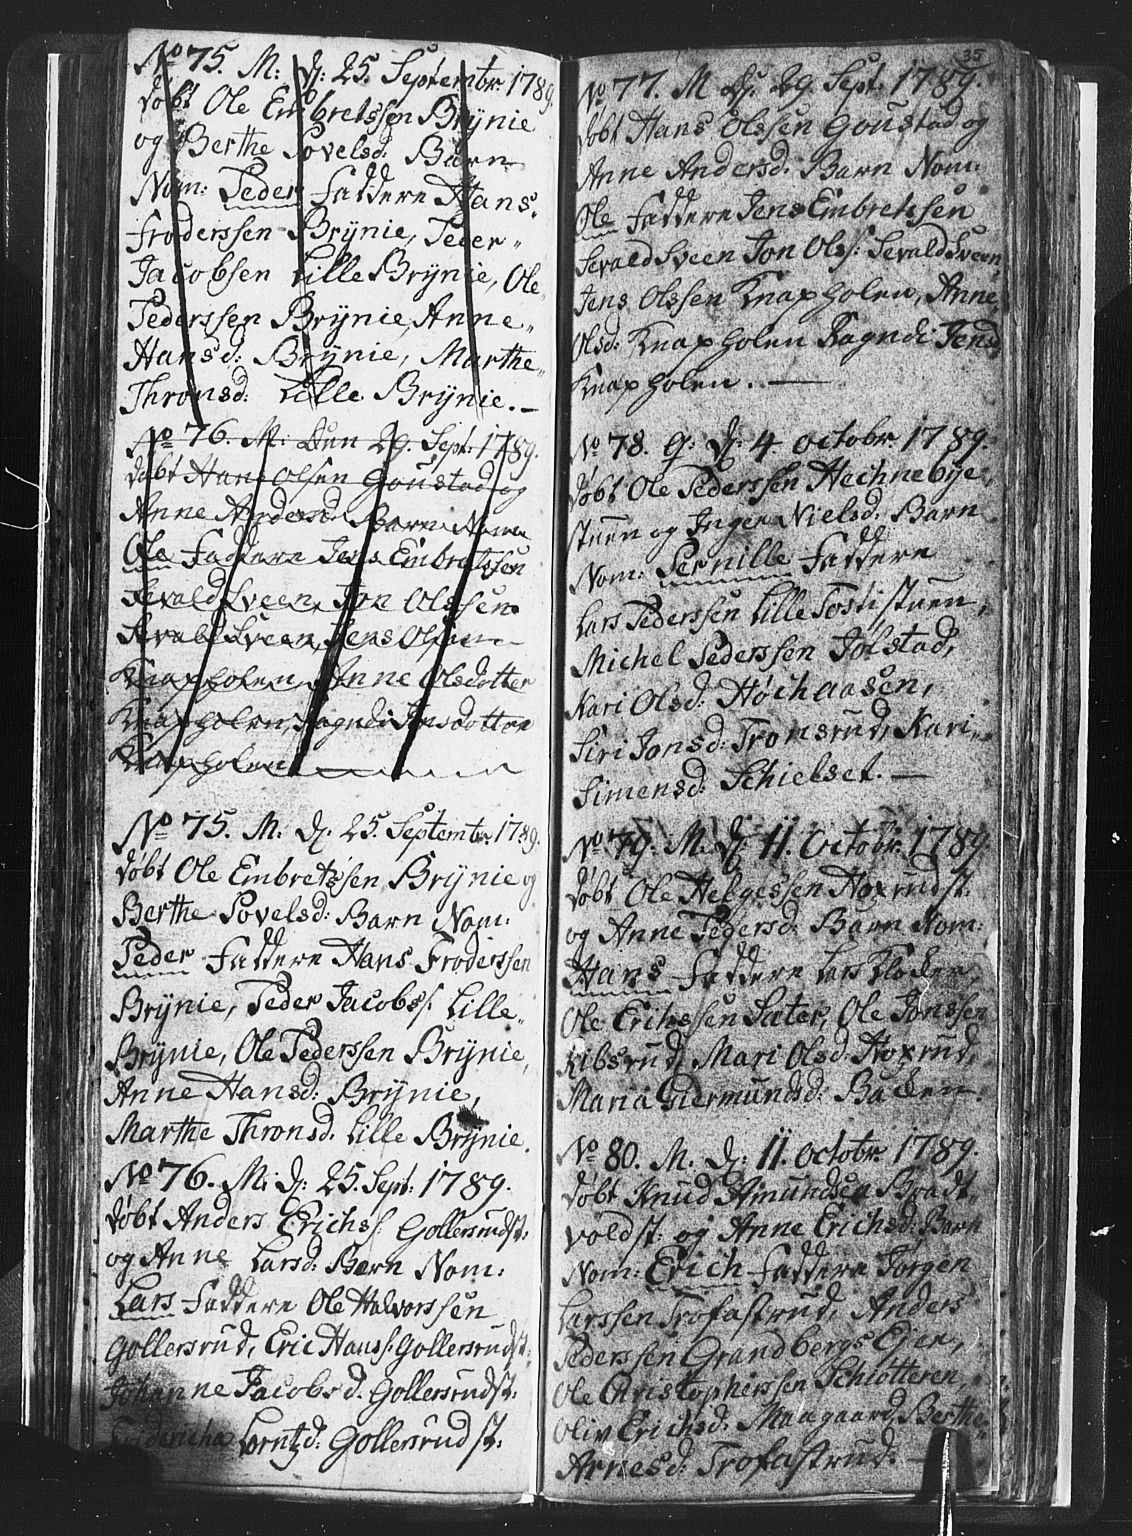 No 75. M: d: 25. Septembr. 1789.
døbt Ole Embretssen Brÿnie
og Berthe Povelsd: Barn
Nom: Peder Faddere Hans
Froderssen Brÿnie, Peder
Jacobsen Lille Brÿnie, Ole
Pederssen Brÿnie, Anne
Hansd: Brÿnie, Marthe
Thronsd: Lille Brÿnie.
No 76. M: Den 29. Sept: 1789.
døbt Hans Olsen Goustad og
Anne Andersd: Barn Nom:
Ole Faddere Jens Embretssen
Sevald Sveen, Jon Olssen
Sevald Sveen, Jens Olsen
Knapholen, Anne Olsdotter
Knapholen, Ragndi Jensdotter
Knapholen
No 75. M: d: 25. Septembr. 1789.
døbt Ole Embretssen Brÿnie og
Berthe Povelsd: Barn Nom:
Peder Faddere Hans Froderssen
Brÿnie, Peder Jacobss: Lille
Brÿnie, Ole Pederssen Brÿnie,
Anne Hansd: Brÿnie,
Marthe Thronsd. Lille Brÿnie.
No 76. M: d: 25. Sept: 1789.
døbt Anders Erichss: Gollersrudst:
og Anne Larsd: Barn Nom:
Lars Faddere Ole Halvorssen
Gollersrud, Eric Hanss: Gollersrudst:
Johanne Jacobsd. Gollersrudst:
Friderichæ Lorntzd: Gollersrudst:
35
No 77. M d: 29. Sept: 1789.
døbt Hans Olssen Goustad og
Anne Andersd: Barn Nom:
Ole Faddere Jens Embretssen
Sevald Sveen Jon Olss: Sevald Sveen,
Jens Olssen Knapholen, Anne
Olsd: Knapholen Ragndi Jensd
Knapholen.
No 78. G: d: 4. octobr. 1789.
døbt Ole Pederssen Hechnebÿe
stuen og Inger Nielsd: Barn
Nom: Pernille Faddere
Lars Pederssen Lille Tostistuen,
Michel Pederssen Jolstad,
Kari Olsd: Høchaasen,
Siri Jonsd: Tronsrud, Kari
Simensd: Schielset.
No 79. M: d: 11. Octobr. 1789.
døbt Ole Helgessen Hoxrudst:
og Anne Pedersd: Barn Nom:
Hans Faddere Lars Klocker,
Ole Erichssen Sater, Ole Jonssen
Kibsrud, Mari Olsd: Hoxrud,
Maria Giermundsd: Backen.
No 80. M. d: 11. octobr. 1789.
døbt Knud Amundsen Bradt
voldst: og Anne Erichsd: Barn
Nom: Erich Faddere Jørgen
Larssen Trofastrud, Anders
Pederssen Grandbergs Ejer,
Ole Christopherssen Schiøtteren
Oliv Erichsd: Maagaard, Berthe
Arnesd: Trofastrud.